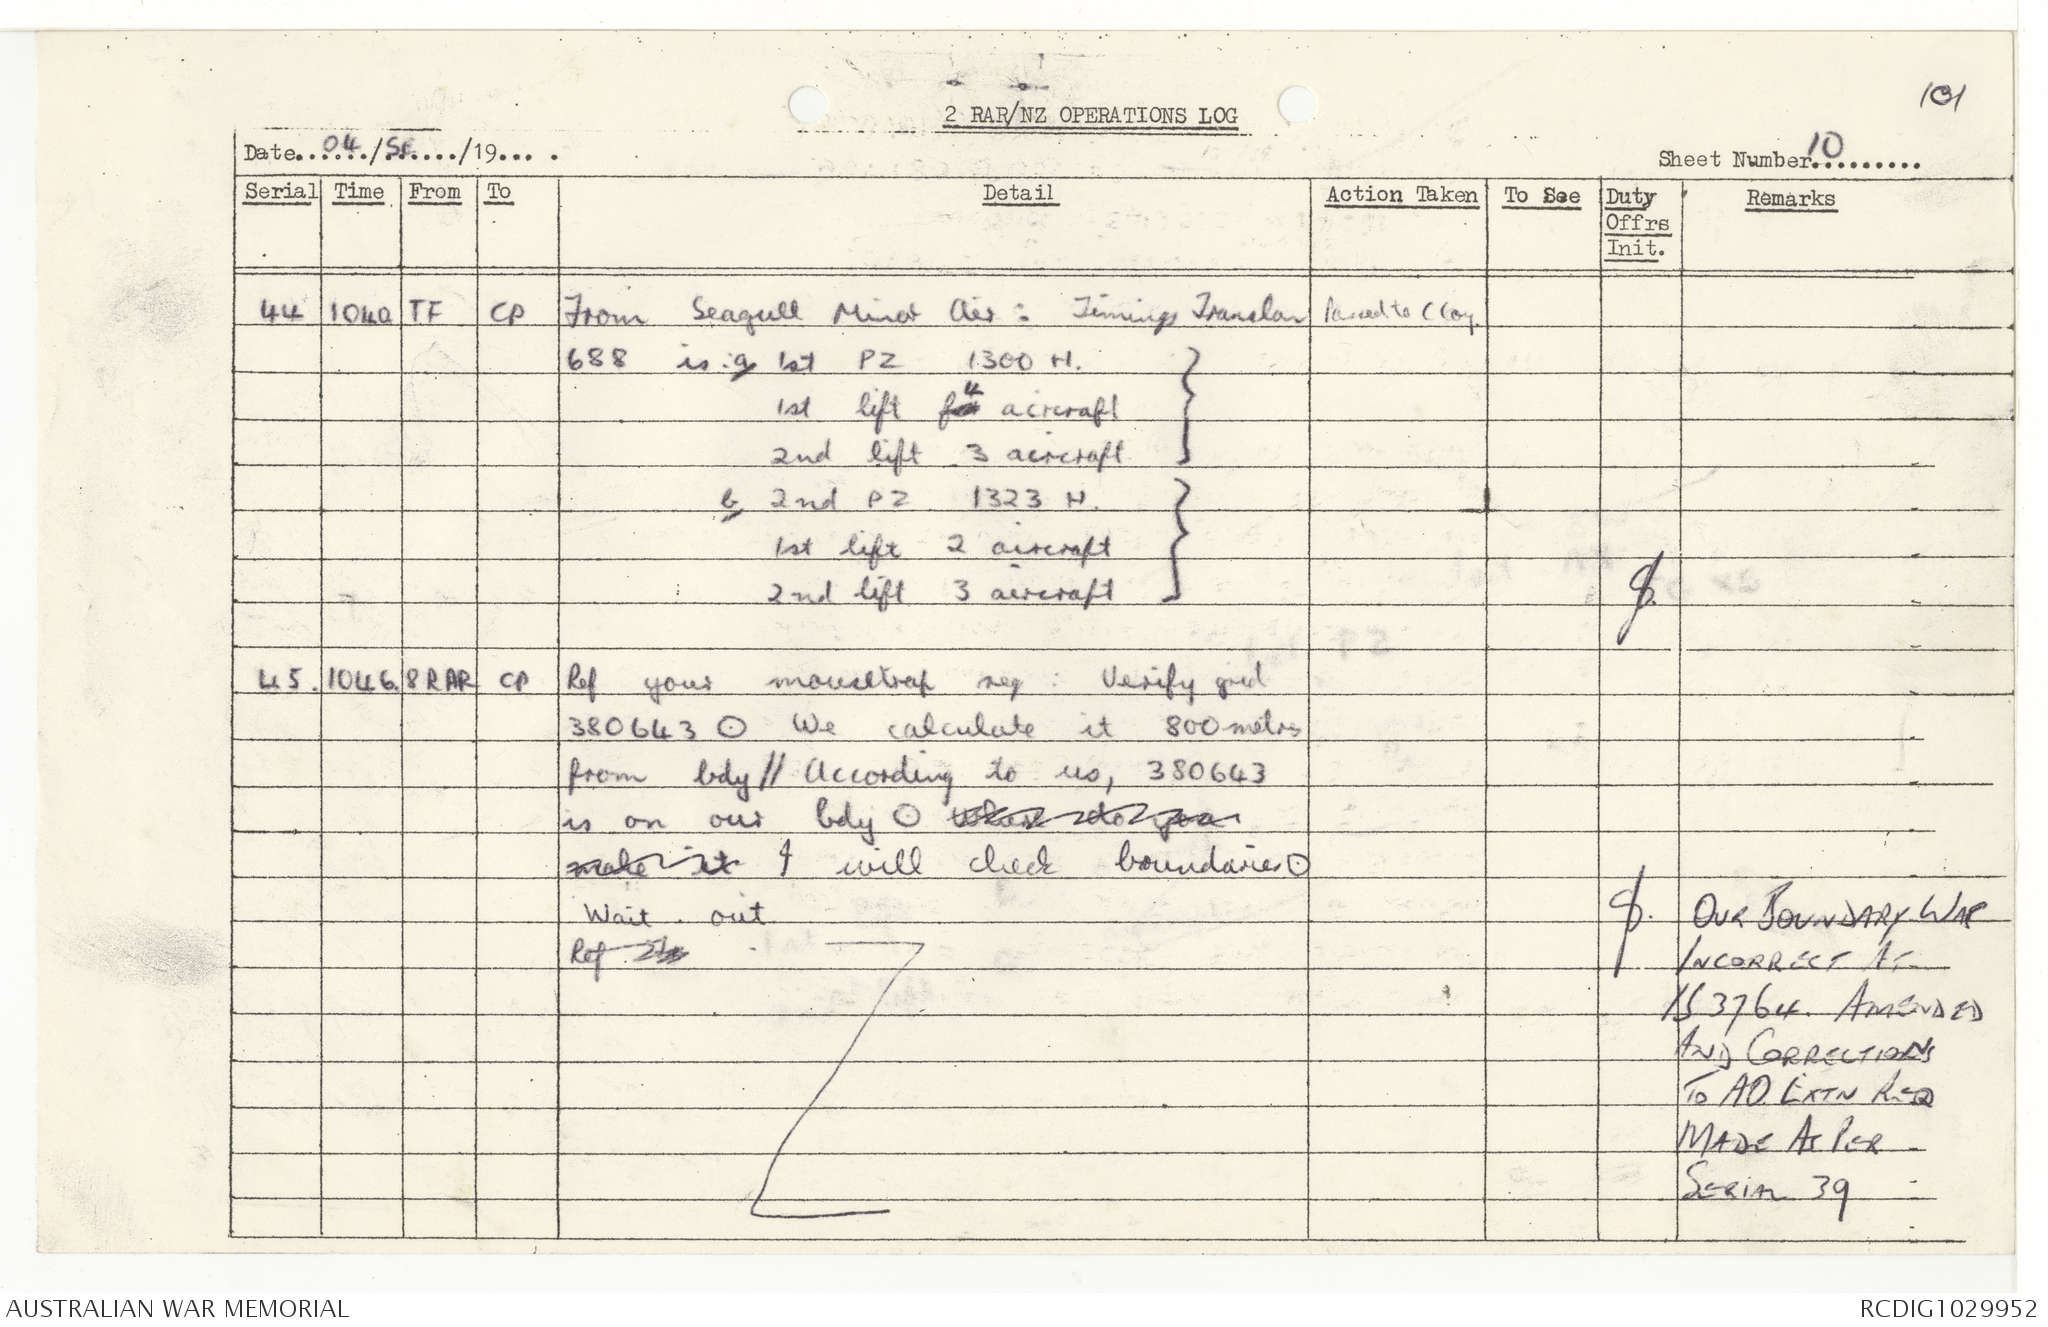 101
2 RAR/NZ OPERATIONS LOG
Date...04.../SE....../19... .
Sheet Number 10.........
Serial Time From To Detail Action Taken To See Duty Offrs Init. Remarks
44 1040 TF CP From Seagull Minor Air: Timings Translan Passed to C Coy.
688 is: a 1st PZ 1300 H.
1st lift 4 aircraft
2nd lift 3 aircraft
b 2nd PZ 1323 H.
1st lift 2 aircraft
2nd lift 3 aircraft
45. 1046. 8RAR CP Ref your mousetrap req: Verify grid
380643 ⊙ We calculate it 800 metres
from bdy // According to us, 380643
is on our bdy ⊙ to you
make it I will check boundaries ⊙
Wait out
Ref
OUR BOUNDARY WAS
INCORRECT AT
YS 3764. AMENDED
AND CORRECTIONS
TO AO EXTN REQ
MADE AS PER
SERIAL 39
AUSTRALIAN WAR MEMORIAL
RCDIG1029952